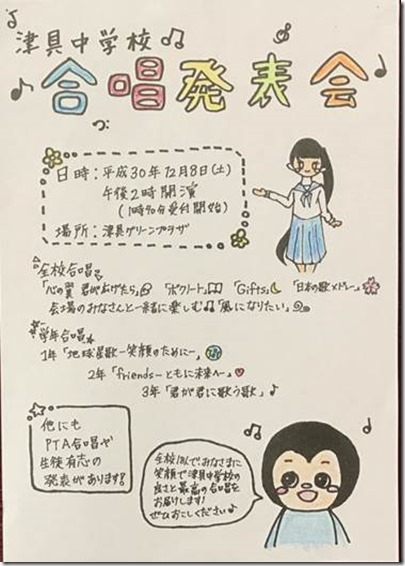 津具中学校
合唱発表会
日時：平成30年12月8日(土)
午後2時開演
(1時40分受付開始)
場所：津具グリーンプラザ
全校合唱
「心の翼 君があげたら」「ボクノート」「Gifts」「日本の歌メドレー」
会場のみなさんと一緒に楽しむ「風になりたい」
学年合唱
1年「地球星歌ー笑顔のためにー」
2年「friendsーともに未来へー」
3年「君が君に歌う歌」
他にも
PTA合唱や
生徒有志の
発表があります!
で、みなさまに
笑顔で津具中学校の
良さと最高の合唱を
お届けします!
ぜひおこしください